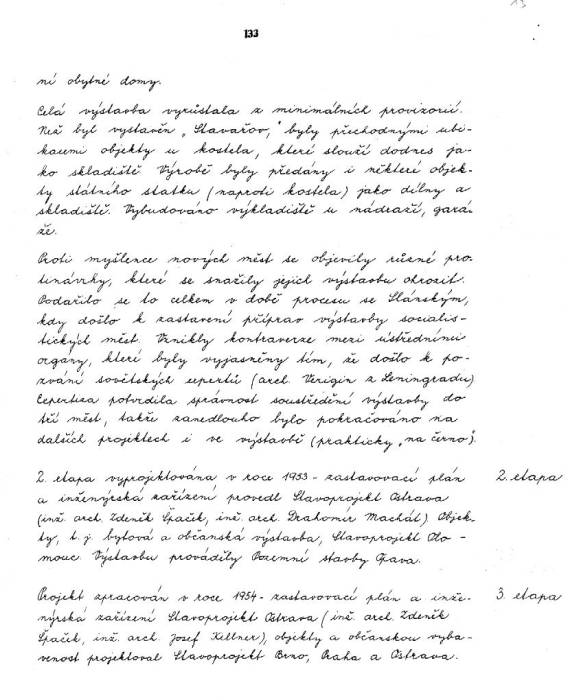 13
133
ní obytné domy.
Celá výstavba vyrůstala z minimálních provizorií.
Než byl vystavěn „Stavařov," byly přechodnými ubi-
kacemi objekty u kostela, které slouží dodnes ja-
ko skladiště. Výrobě byly předány i některé objek-
ty státního statku (naproti kostela) jako dílny a
skladiště. Vybudováno výkladiště u nádraží, gará-
že.
Proti myšlence nových měst se objevily různé pro-
tinávrhy, které se snažily jejich výstavbu ohrozit.
Podařilo se to celkem v době procesu se Slánským,
kdy došlo k zastavení příprav výstavby socialis-
tických měst. Vznikly kontraverze mezi ústředními
orgány, které byly vyjasněny tím, že došlo k po-
zvání sovětských expertů (arch. Verigin z Leningradu)
Expertiza potvrdila správnost soustředění výstavby do
tří měst, takže zanedlouho bylo pokračováno na
dalších projektech i ve výstavbě (prakticky „na černo").
2. etapa vyprojektována v roce 1953 - zastavovací plán
a inženýrská zařízení provedl Stavoprojekt Ostrava
(inž. arch. Zdeněk Špaček, inž. arch. Drahomír Machát). Objek-
ty, t.j. bytová a občanská výstavba, Stavoprojekt Olo-
mouc. Výstavbu prováděly Pozemní stavby Opava.
2. etapa
Projekt zpracován v roce 1954 - zastavovací plán a inže-
nýrská zařízení Stavoprojekt Ostrava (inž. arch. Zdeněk
Špaček, inž. arch. Josef Kellner), objekty a občanskou vyba-
venost projektoval Stavoprojekt Brno, Praha a Ostrava.
3. etapa